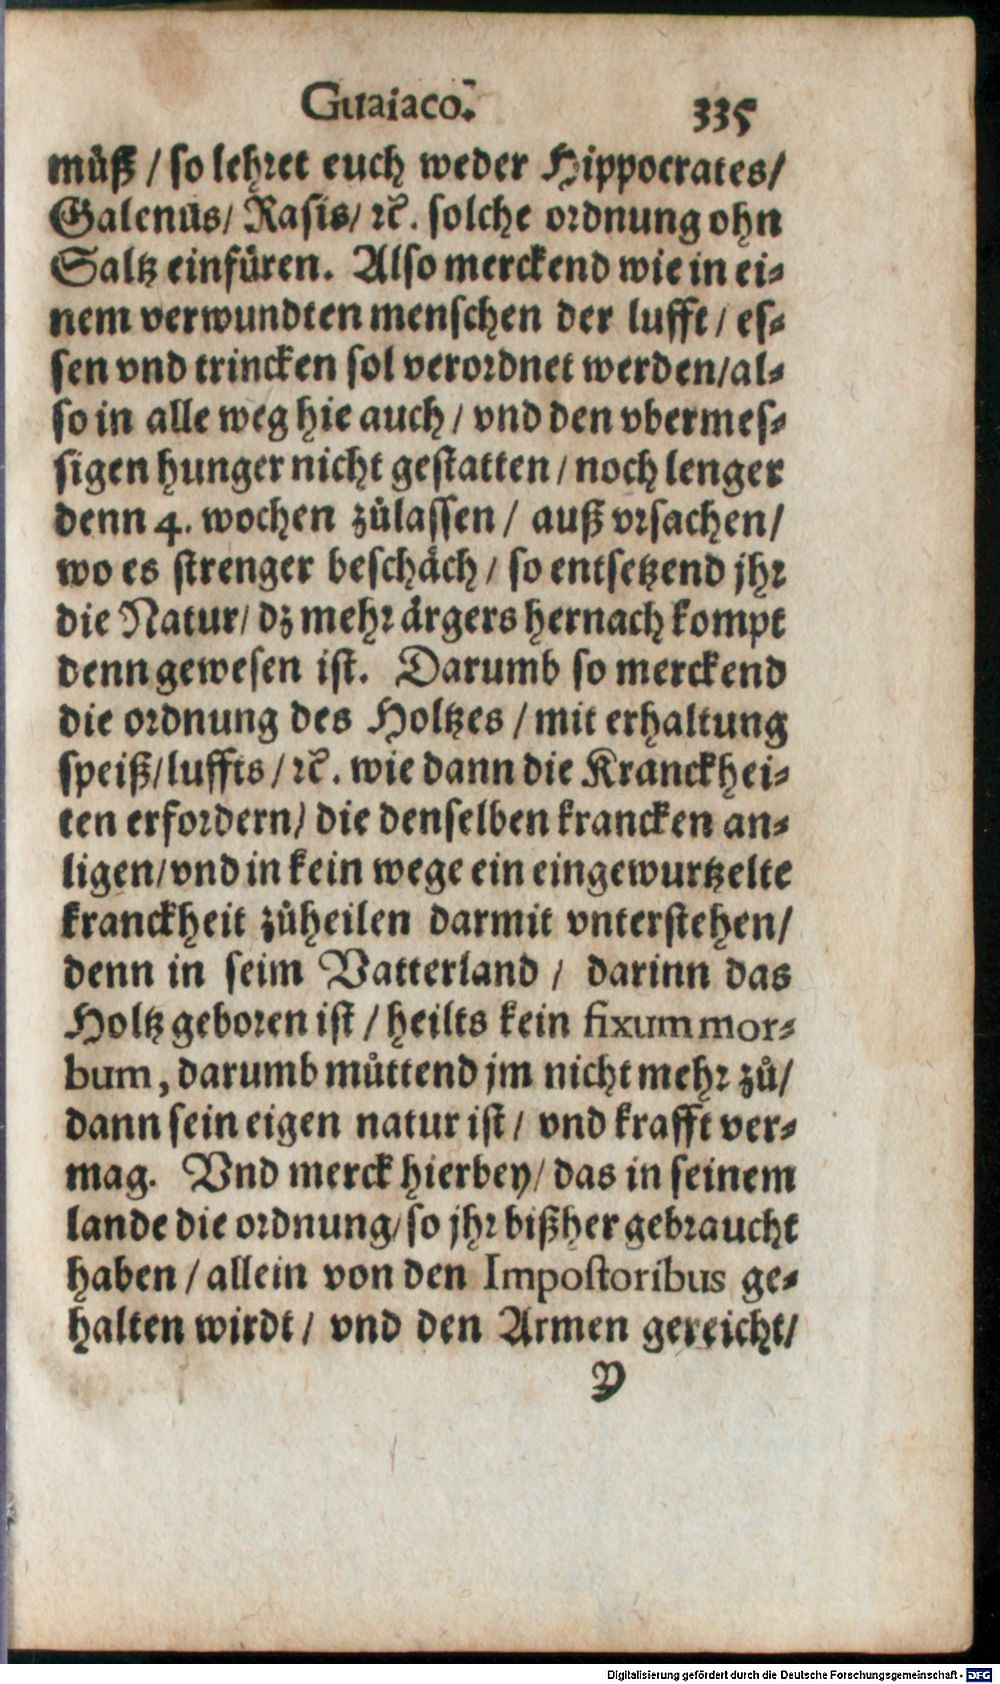 Guaiaco. 335
můß / so lehret euch weder Hippocrates/
Galenus/ Rasis/ ꝛc. solche ordnung ohn
Saltz einfüren. Also merckend wie in ei⸗
nem verwundten menschen der lufft / es⸗
sen vnd trincken sol verordnet werden/al⸗
so in alle weg hie auch / vnd den vbermes⸗
sigen hunger nicht gestatten / noch lenger
denn 4. wochen zůlassen / auß vrsachen/
wo es strenger beschäch / so entsetzend jhr
die Natur/ dz mehr ärgers hernach kompt
denn gewesen ist. Darumb so merckend
die ordnung des Holtzes / mit erhaltung
speiß/luffts / ꝛc. wie dann die Kranckhei⸗
ten erfordern/ die denselben krancken an⸗
ligen/vnd in kein wege ein eingewurtzelte
kranckheit zůheilen darmit vnterstehen/
denn in seim Vatterland / darinn das
Holtz geboren ist / heilts kein fixum mor⸗
bum, darumb můttend jm nicht mehr zů/
dann sein eigen natur ist / vnd krafft ver⸗
mag. Vnd merck hierbey/ das in seinem
lande die ordnung/so jhr bißher gebraucht
haben / allein von den Impostoribus ge⸗
halten wirdt / vnd den Armen gereicht/
Y
Digitalisierung gefördert durch die Deutsche Forschungsgemeinschaft - DFG